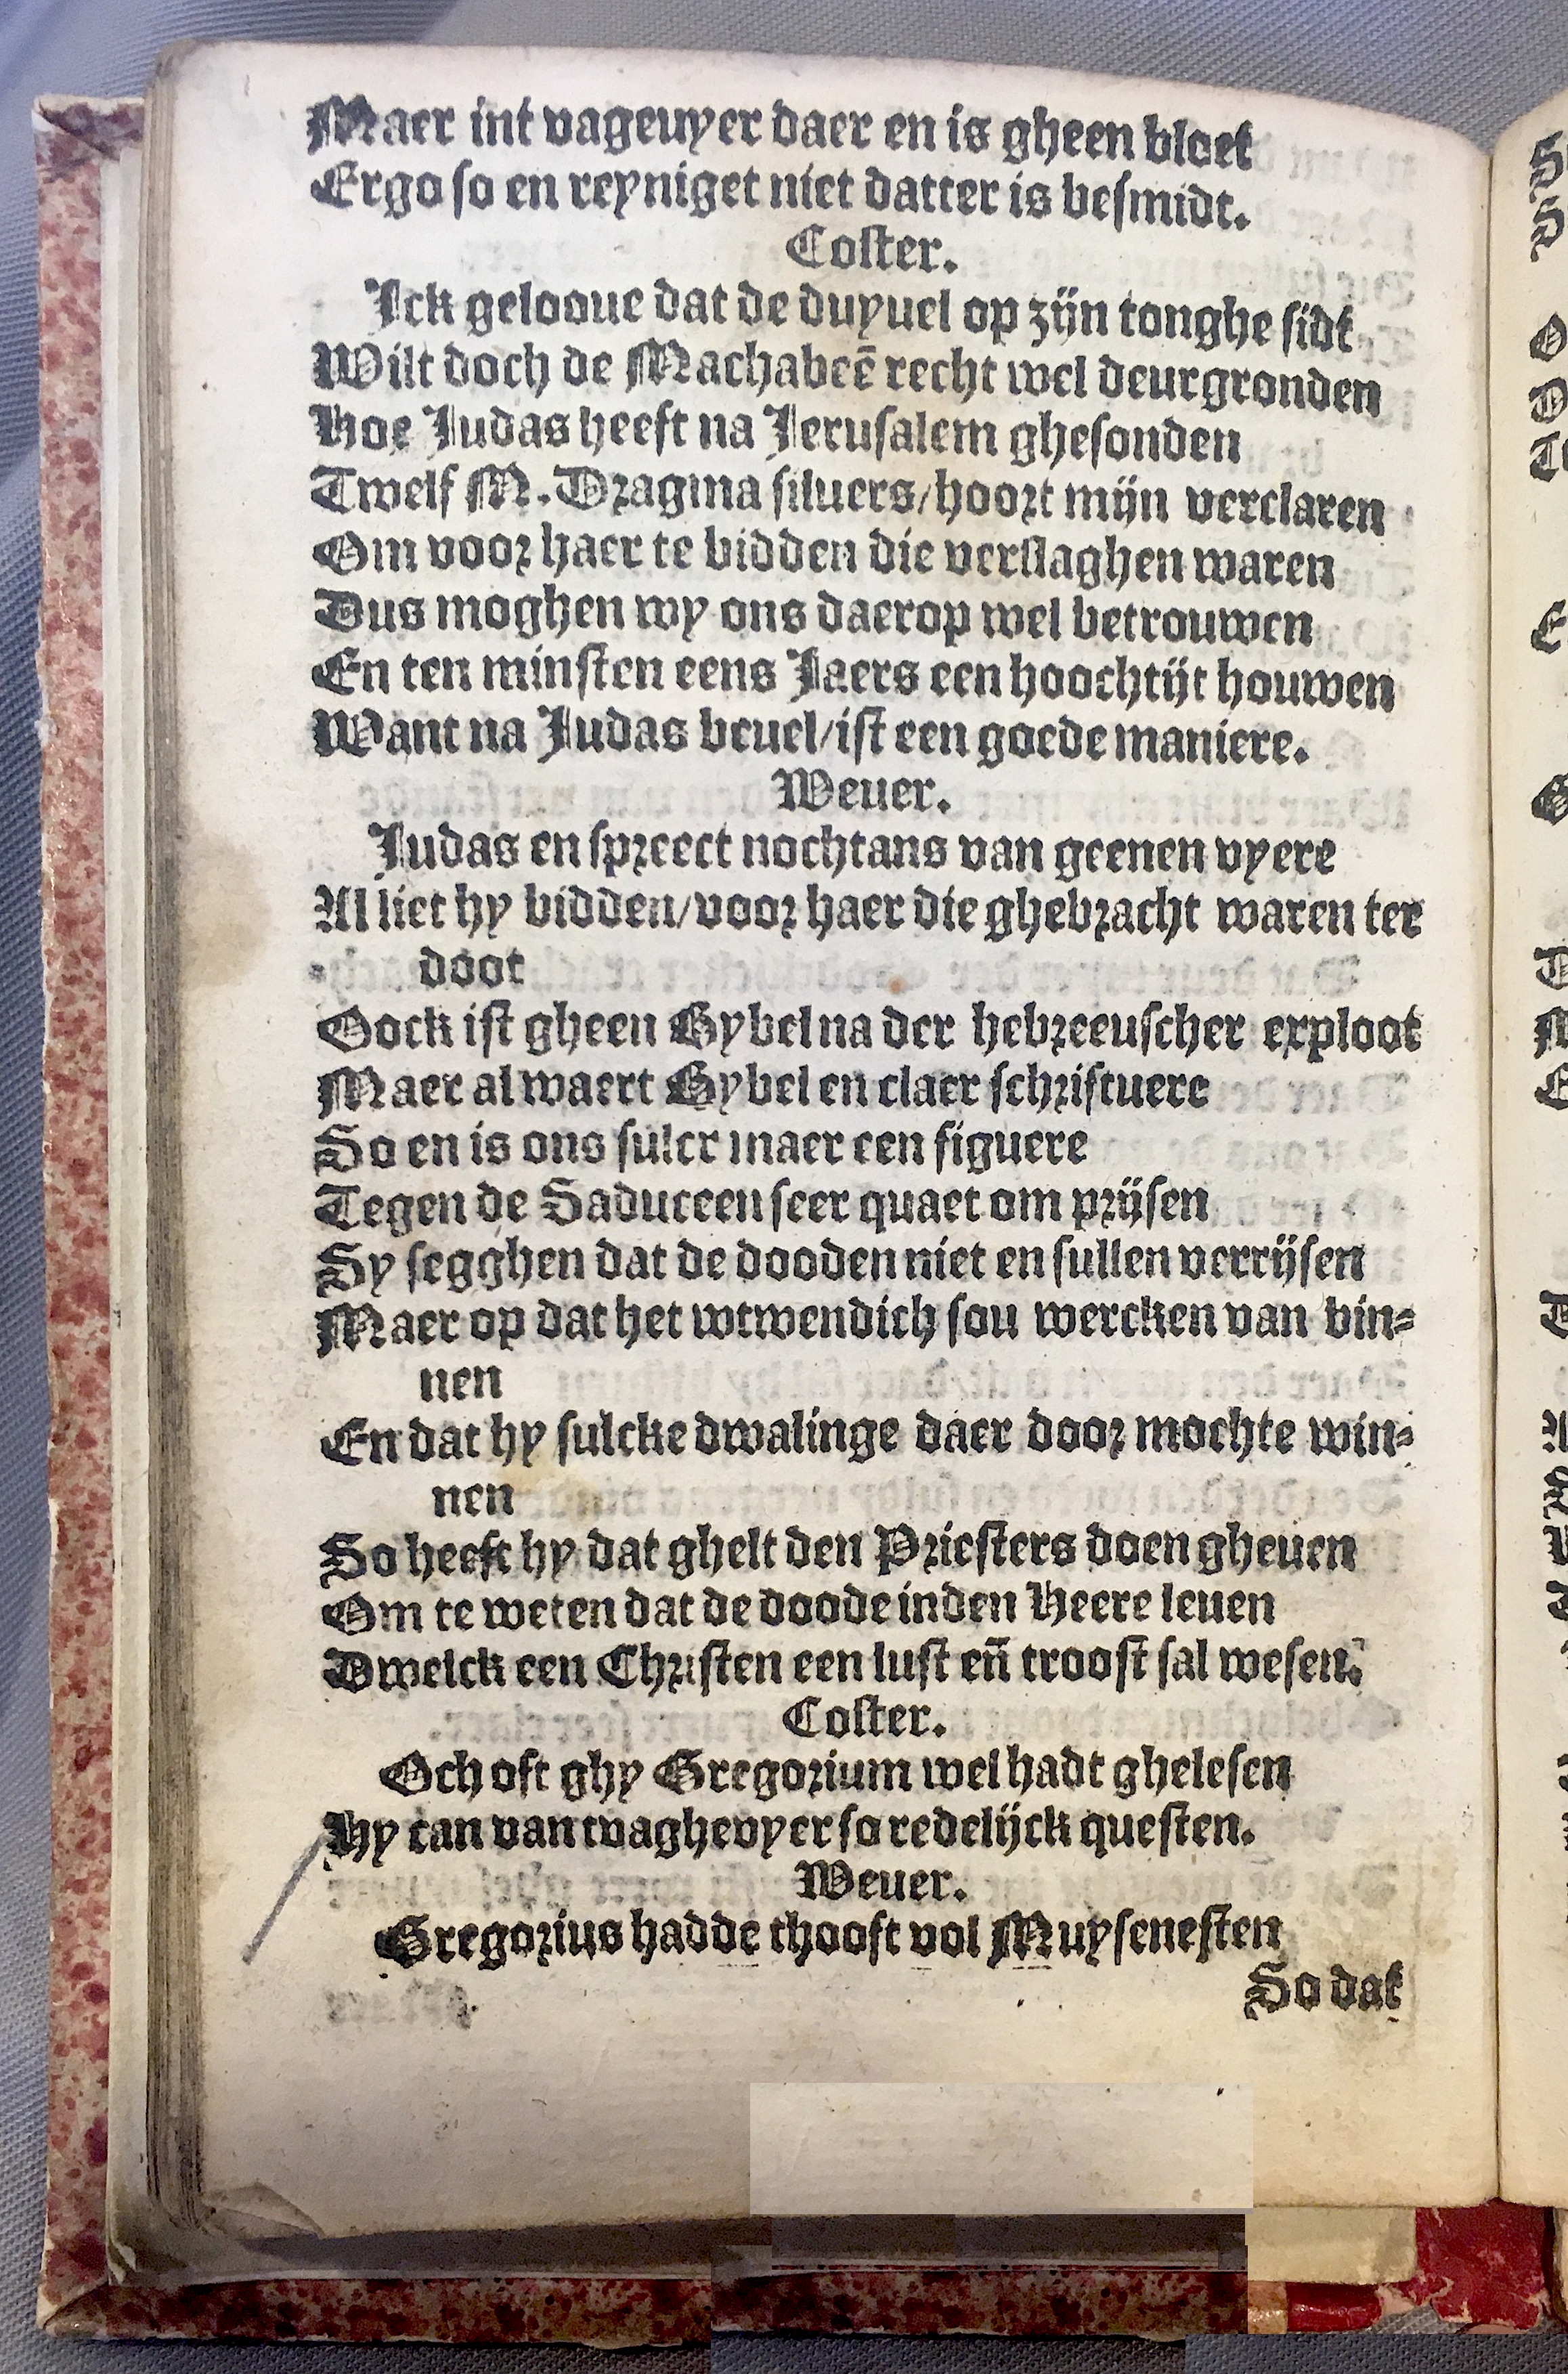 Maer int vageuyer daer en is gheen bloet
Ergo so en reyniget niet datter is besmidt.
Coster.
Ick geloouue dat de duyuel op zijn tonghe sidt
Wilt doch de Machabeē recht wel deurgronden
Hoe Judas heeft na Jerusalem ghesonden
Twelf M. Dragma siluers/hoort mijn verclaren
Om voor haer te bidden die verslaghen waren
Dus moghen wy ons daerop wel betrouwen
En ten minsten eens Jaers een hoochtijt houwen
Want na Judas beuel/ist een goede maniere.
Weuer.
Judas en spreect nochtans van geenen vyere
Al liet hy bidden/voor haer die ghebracht waren ter
doot
Oock ist gheen Bybel na der hebreeuscher exploot
Maer al waert Bybel en claer schriftuere
So en is ons sulcr maer een figuere
Tegen de Saduceen seer quaet om prijsen
Sy segghen dat de dooden niet en sullen verrijsen
Maer op dat het wtwendich sou wercken van bin=
nen
En dat hy sulcke dwalinge daer door mochte win=
nen
So heeft hy dat ghelt den Priesters doen gheuen
Om te weten dat de doode inden Heere leuen
Dwelck een Christen een lust eñ troost sal wesen.
Coster.
Och oft ghy Gregorium wel hadt ghelesen
Hy can van tvaghevyer so redelijck questen.
Weuer.
Gregorius hadde thooft vol Muysenesten
So dat